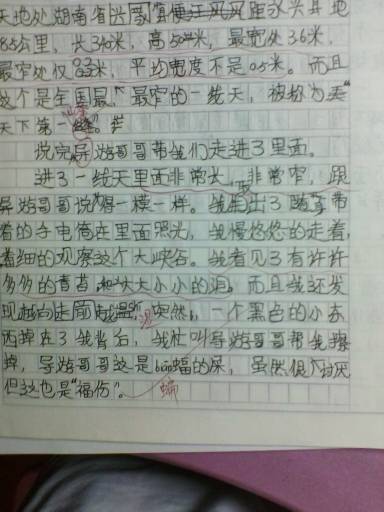 天地处湖南省
85公里，长340米，高504米，最宽处3.6米，
最窄处仅0.33米，平均宽度不足0.5米。而且
这个是全国最长最窄的一线天，被称为"
天下第一
说完导游哥哥带我们走进了里面。
进了一线天里面非常长，非常窄，跟
导游哥哥说得一模一样。我拿出了随身带
着的手电筒在里面照光，我慢悠悠的走着，
着细的观察这个大峡谷。我看见了有许许
多多的青苔，和大大小小的洞，而且我还发
现越向走 越 湿突然，一个黑色的小东
西掉在了我背后，我忙叫导游哥哥帮我擦
掉，导游哥哥这是 蝠的屎，虽然很讨厌
但这也是"福伤"。
蝙